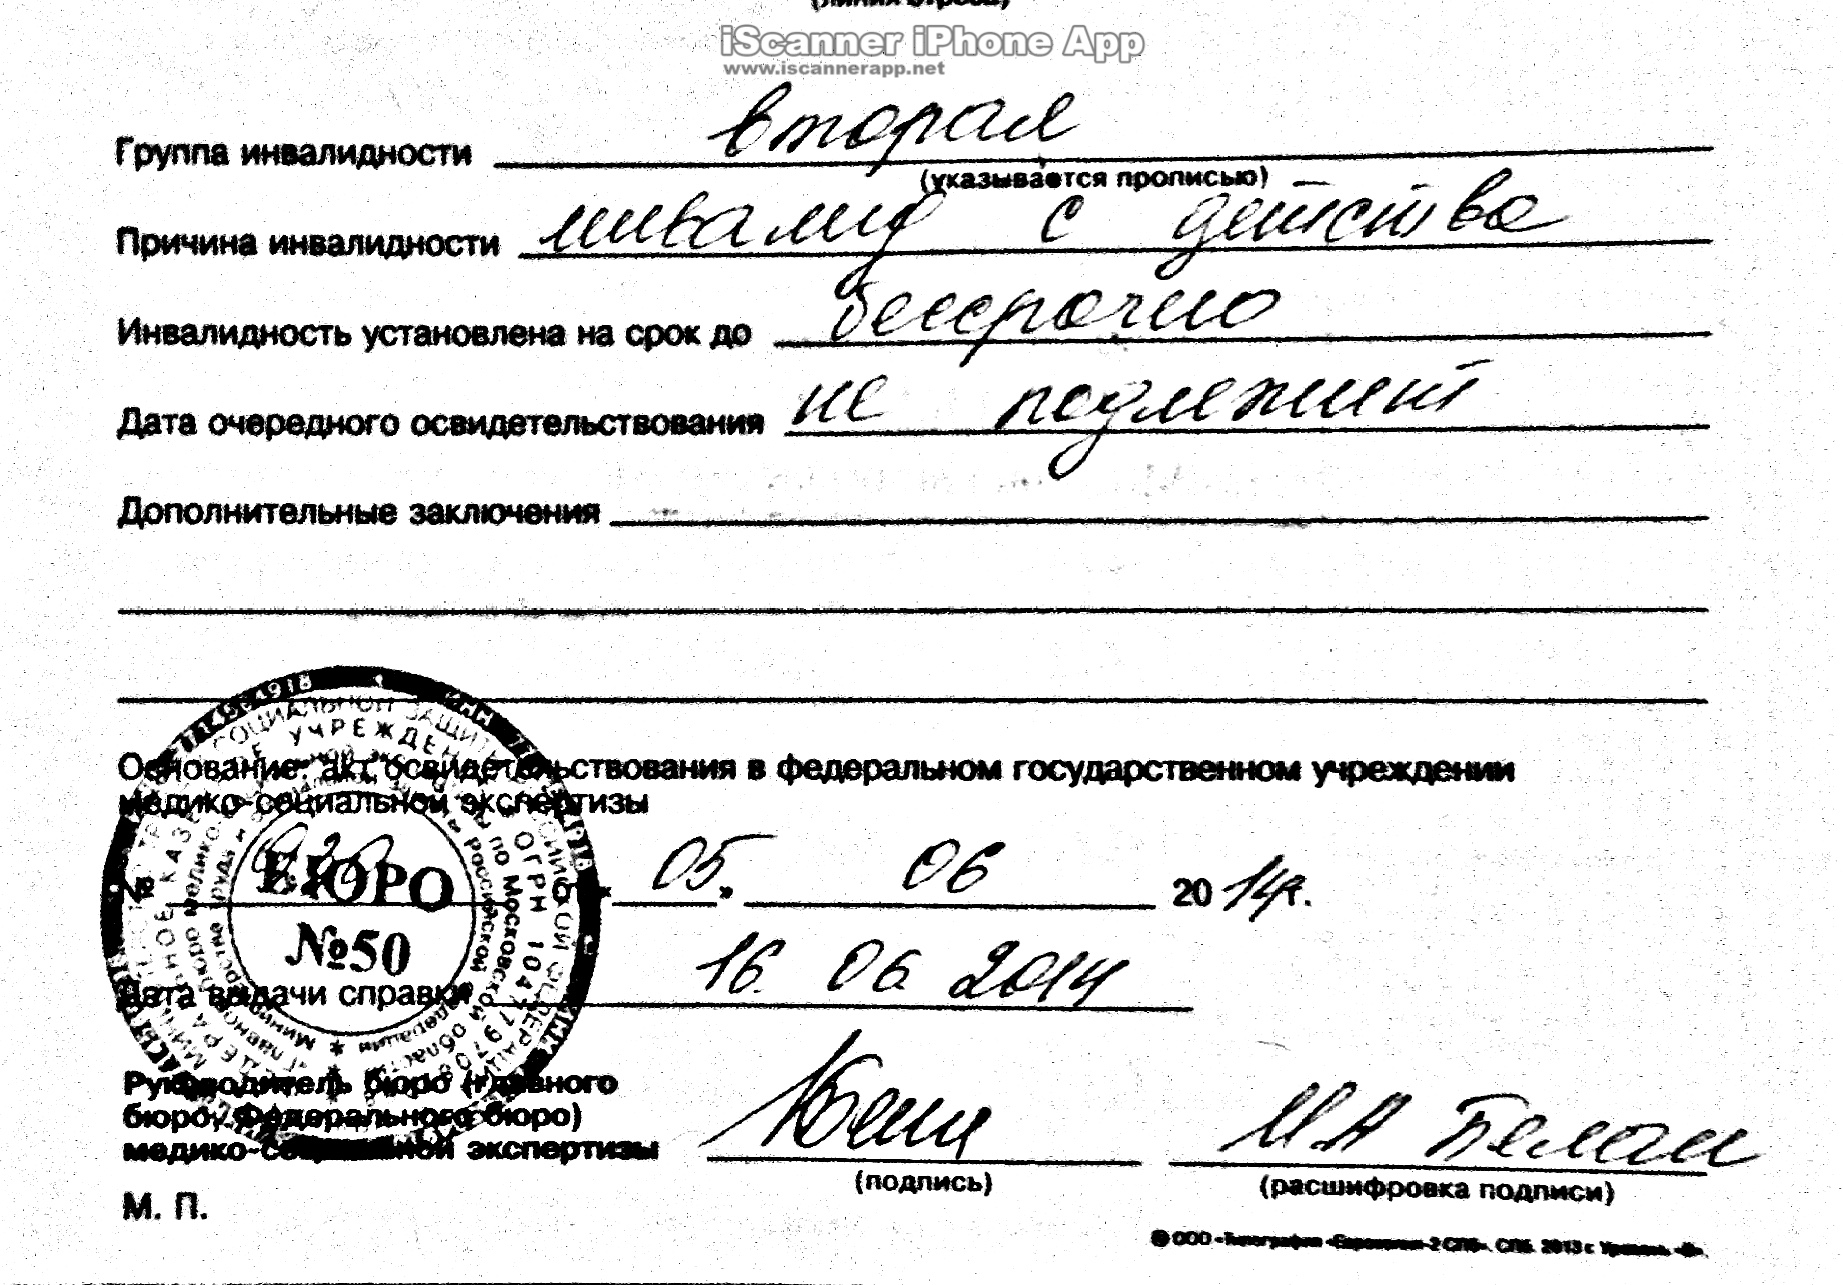 (линия отреза)
iScanner iPhone App
www.iscannerapp.net
Группа инвалидности вторая
(указывается прописью)
Причина инвалидности инвалид с детства
Инвалидность установлена на срок до бессрочно
Дата очередного освидетельствования не подлежит
Дополнительные заключения
Основание: акт освидетельствования в федеральном государственном учреждении
медико-социальной экспертизы
№ от « 05 » 06 20 14 г.
БЮРО
№50
Дата выдачи справки 16. 06. 2014
Руководитель бюро (главного
бюро, Федерального бюро)
медико-социальной экспертизы
(подпись) (расшифровка подписи)
М. П.